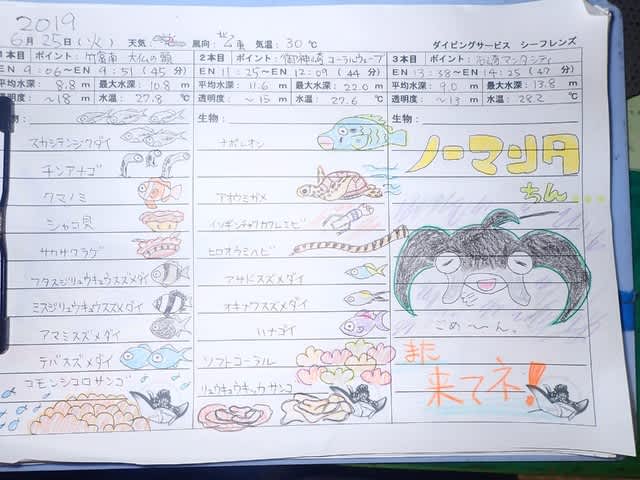 2019
6月25日(火) 天気 風向 気温 30℃
ダイビングサービス シーフレンズ
1本目 ポイント: 竹富南 大仏の頭
EN 9:06~EN 9:51 (45分)
平均水深: 8.8m 最大水深: 10.8m
透明度: ~18m 水温: 27.8
生物:
スカシテンジクダイ
チンアナゴ
クマノミ
シャコ貝
サカサクラゲ
フタスジリュウキュウスズメダイ
ミスジリュウキュウスズメダイ
アマミスズメダイ
デバスズメダイ
コモンシコロサンゴ
2本目 ポイント: 御神崎 コーラルウェーブ
EN 11:25~EN 12:09 (44分)
平均水深: 11.6m 最大水深: 22.0m
透明度: ~15m 水温: 27.6
生物:
ナポレオン
アオウミガメ
イソギンチャクカクレエビ
ヒロオウミヘビ
アサドスズメダイ
オキナワスズメダイ
ハナゴイ
ソフトコーラル
リュウキュウキッカサンゴ
3本目 ポイント: 石崎マンタシティ
EN 13:38~EN 14:25 (47分)
平均水深: 9.0m 最大水深: 13.8m
透明度: ~13m 水温: 28.2℃
生物:
ノーマンタ
ちん...
ごめ〜ん。
また
来てネ!